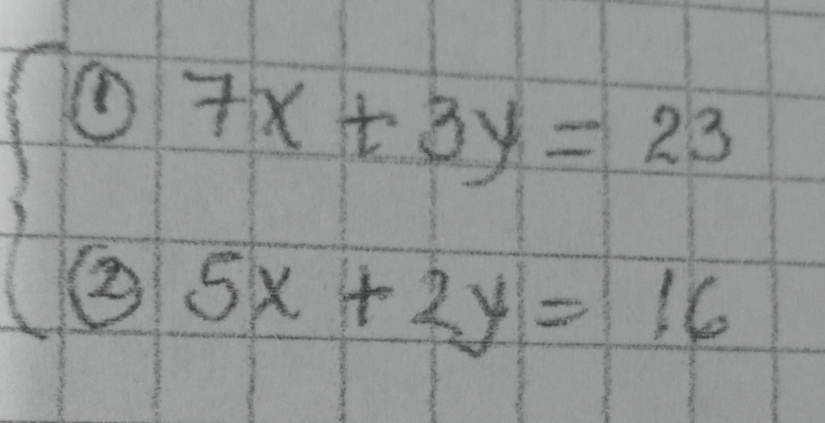 ① 7x + 3y = 23
② 5x + 2y = 16